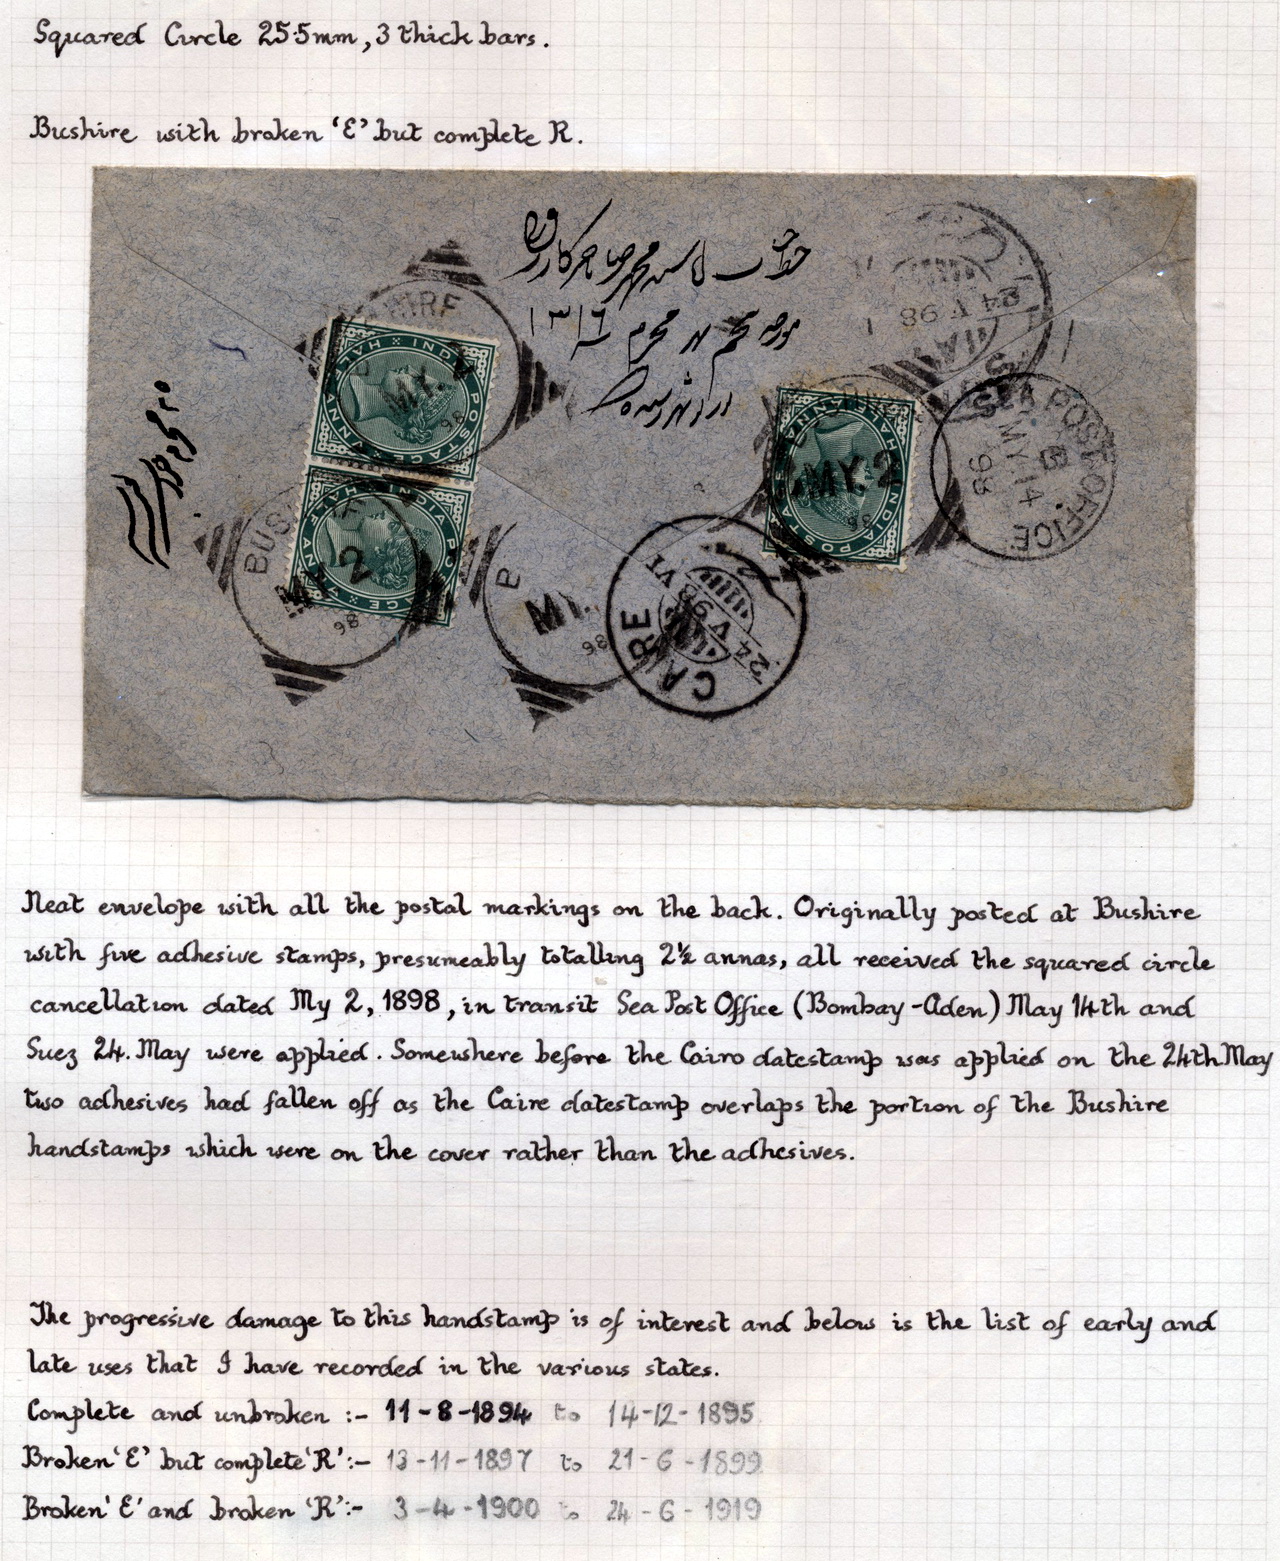 Squared Circle 25.5mm, 3 thick bars.
Bushire with broken 'E' but complete R.
۱۳۱٦
BUSHIRE
MY. 2
98
INDIA POSTAGE
HALF ANNA
BUS
2
98
B
MY.
98
CAIRE
24 V 98 VI
MY. 2
98
INDIA POSTAGE
HALF ANNA
24 V 98
SEA POST OFFICE
B
MY. 14
98
Neat envelope with all the postal markings on the back. Originally posted at Bushire
with five adhesive stamps, presumeably totalling 2½ annas, all received the squared circle
cancellation dated My 2, 1898, in transit Sea Post Office (Bombay-Aden) May 14th and
Suez 24. May were applied. Somewhere before the Cairo datestamp was applied on the 24th May
two adhesives had fallen off as the Caire datestamp overlaps the portion of the Bushire
handstamps which were on the cover rather than the adhesives.
The progressive damage to this handstamp is of interest and below is the list of early and
late uses that I have recorded in the various states.
Complete and unbroken :- 11-8-1894 to 14-12-1895
Broken 'E' but complete 'R':- 13-11-1897 to 21-6-1899
Broken 'E' and broken 'R':- 3-4-1900 to 24-6-1919